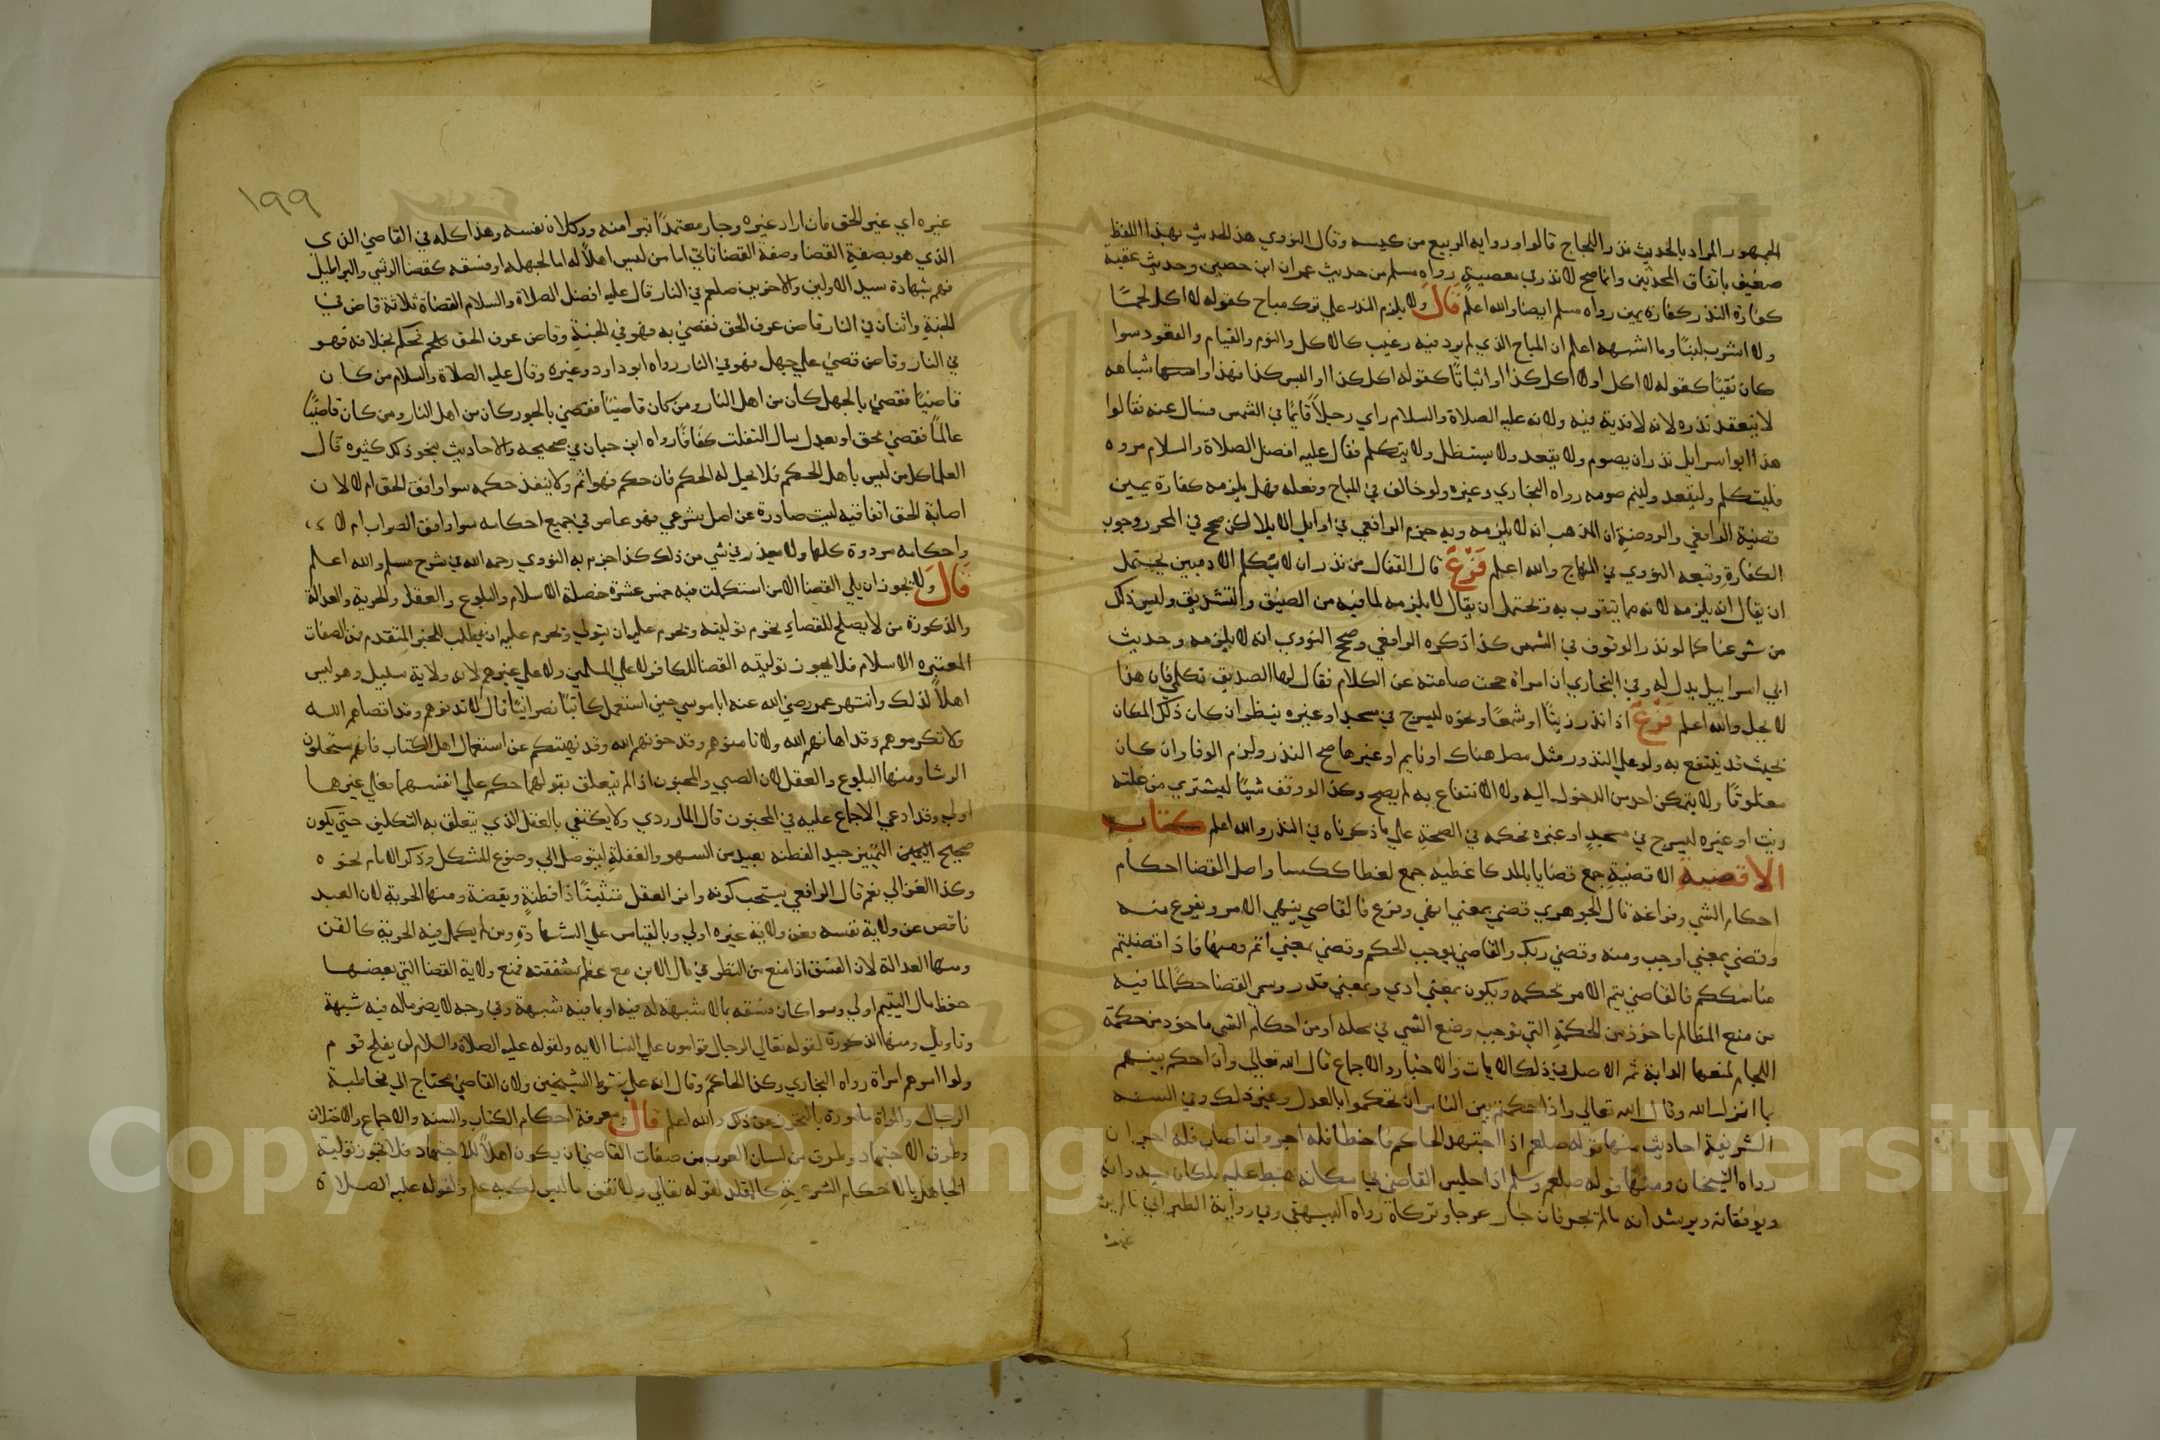 الجمهور المراد بالحديث نذر اللجاج قالوا ورواية الربيع من كيسه وقال النووي هذا الحديث بهذا اللفظ
ضعيف باتفاق المحدثين وانما صح لا نذر في معصية رواه مسلم من حديث عمران ابن حصين وحديث عقبة
كفارة النذر كفارة يمين رواه مسلم ايضا والله اعلم قال ولا يلزم النذر علي ترك مباح كقوله لا اكل لحمًا
ولا اشرب لبنًا وما اشبهه اعلم ان المباح الذي لم يرد فيه رغيب كالاكل والنوم والقيام والقعود سوا
كان نفيًا كقوله لا اكل اولا اكل كذا او اثباتًا كقوله اكل كذا او البس كذا فهذا واشباهه
لا ينعقد نذره لانه لا قربة فيه ولانه عليه الصلاة والسلام راي رجلاً قايمًا في الشمس فسال عنه فقالوا
هذا ابو اسرايل نذر ان يصوم ولا يقعد ولا يستظل ولا يتكلم فقال عليه افضل الصلاة والسلام مروه
فليتكلم وليقعد وليتم صومه رواه البخاري وغيره ولو خالف في المباح وفعله فهل يلزمه كفارة يمين
قضية الرافعي والروضة ان المذهب انه لا يلزمه وبه جزم الرافعي في اوايل الايلا لكن صحح في المحرر وجوب
الكفارة وتبعه النووي في المنهاج والله اعلم فرع قال القفال من نذر ان لا يكلم الادميين يحتمل
ان يقال انه يلزمه لانه مما يتقرب به ويحتمل ان يقال لا يلزمه لما فيه من الضيق والتشديد وليس ذلك
من شرعنا كما لو نذر الوقوف في الشمس كذا ذكره الرافعي وصحح النووي انه لا يلزمه وحديث
ابي اسراييل يدل له وفي البخاري ان امراة حجت صامتة عن الكلام فقال لها الصديق تكلمي فان هذا
لا يحل والله اعلم فرع اذا نذر زيتًا او شمعًا ونحوه ليسرج في مسجد او غيره ينظر ان كان ذلك المكان
بحيث قد ينتفع به ولو علي النذور مثل مصل هناك او نايم او غيرها صح النذر ولزم الوفا وان كان
مغلوقًا ولا يتمكن احد من الدخول اليه ولا الانتفاع به لم يصح وكذا لو وقف شيًا ليشتري من غلته
زيت او غيره ليسرج في مسجد او غيره فحكمه في الصحة علي ما ذكرناه في النذر والله اعلم كتاب
الاقضية الاقضية جمع قضايا بالمد كاغطية جمع لغطا ككسا واصل القضا احكام
احكام الشي وفراغه قال الجوهري قضي بمعني انهي وفرغ فالقاضي ينهي الامر ويفرغ منه
وقضي بمعني اوجب ومنه وقضي ربك والقاضي يوجب الحكم وقضي بمعني اتم ومنها فاذا قضيتم
مناسككم فالقاضي يتم الامر بحكمه ويكون بمعني ادي وبمعني قدر وسمي القضا حكمًا لما فيه
من منع المظالم ماخوذ من الحكمة التي توجب وضع الشي في محله او من احكام الشي ماخوذ من حكمة
اللجام لمنعها الدابة ثم الاصل في ذلك الايات والاخبار والاجماع قال الله تعالي وان احكم بينهم
بما انزل الله وقال الله تعالي واذا حكمتم بين الناس ان تحكموا بالعدل وغير ذلك وفي السنة
الشريفة احاديث منها قوله صلعم اذا اجتهد الحاكم فاخطا فله اجر وان اصاب فله اجران
رواه الشيخان ومنها قوله صلعم وسلم اذا جلس القاضي في مكانه هبط عليه ملكان يسددانه
ويوفقانه ويرشدانه مالم يجر فان جار عرجا وتركاه رواه البيهقي وفي رواية الطبراني مالم يرد
غيره
١٩٩
غيره اي غير الحق فان اراد غيره وجار معتمدًا تبرا منه ووكلاه نفسه وهذا كله في القاضي الذي
الذي هو بصفة القضا وصفة القضا تاتي اما من ليس اهلاً له اما لجهله او فسقه كقضا الرشي والبراطيل
فهم بشهادة سيد الاولين والاخرين صلعم في النار قال عليه افضل الصلاة والسلام القضاة ثلاثة قاض في
الجنة واثنان في النار قاض عرف الحق فقضي به فهو في الجنة وقاض عرف الحق فحكم بخلافه فهو
في النار وقاض قضي علي جهل فهو في النار رواه ابو داود وغيره وقال عليه الصلاة والسلام من كان
قاضيًا فقضي بالجهل كان من اهل النار ومن كان قاضيًا فقضي بالجور كان من اهل النار ومن كان قاضيًا
عالمًا فقضي بحق او بعدل سال التفلت كفافًا رواه ابن حبان في صحيحه والاحاديث بنحو ذلك كثيرة قال
العلما كل من ليس باهل للحكم فلا يحل له الحكم فان حكم فهو اثم ولا ينفذ حكمه سوا وافق الحق ام لا لان
اصابة الحق اتفاقية ليست صادرة عن اصل شرعي فهو عاص في جميع احكامه سوا وافق الصواب ام لا
واحكامه مردودة كلها ولا يعذر في شي من ذلك كذا جزم به النووي رحمه الله في شرح مسلم والله اعلم
قال ولا يجوز ان يلي القضا الا من استكملت فيه خمس عشرة خصلة الاسلام والبلوغ والعقل والحرية والعدالة
والذكورة من لا يصلح للقضاء تحرم توليته ويحرم عليه ان يتولي ويحرم عليه ان يطلب للخبر المتقدم فمن الصفات
المعتبره الاسلام فلا يجوز تولية القضا للكافر لا علي المسلمين ولا علي غيرهم لانه ولاية سبيل وهو ليس
اهلاً لذلك وانتهر عمر رضي الله عنه ابا موسي حين استعمل كاتبًا نصرانيًا قال لا تدنوهم وقد اقصاهم الله
ولا تكرموهم وقد اهانهم الله ولا تامنوهم وقد خونهم الله وقد نهيتكم عن استعمال اهل الكتاب فانهم يستحلون
الرشا ومنها البلوغ والعقل لان الصبي والمجنون اذا لم يتعلق بقولهما حكم علي انفسهما فعلي غيرهما
اولي وقد ادعي الاجماع عليه في المجنون قال الماوردي ولا يكتفي بالعقل الذي يتعلق به التكليف حتي يكون
صحيح التمييز جيد الفطنة بعيد من السهو والغفلة ليتوصل الي وضوح المشكل وذكر الامام نحوه
وكذا الغزالي نعم قال الرافعي يستحب كونه وافر العقل متثبتًا ذا فطنة ويقضة ومنها الحرية لان العبد
ناقص عن ولاية نفسه فعن ولاية غيره اولي وبالقياس علي الشهادة ومن لم يكمل فيه الحرية كالقن
ومنها العدالة لان الفسق اذا منع من النظر في مال الابن مع عظم شفقته فمنع ولاية القضا التي بعضها
حفظ مال اليتيم اولي وسوا كان فسقه بما لا شبهة له فيه او بما فيه شبهة وفي وجه لا يضر ماله فيه شبهة
وتاويل ومنها الذكورة لقوله تعالي الرجال قوامون علي النسا الاية ولقوله عليه الصلاة والسلام لن يفلح قوم
ولوا امرهم امراة رواه البخاري وكذا الحاكم وقال انه علي شرط الشيخين ولان القاضي محتاج الي مخاطبة
الرجال والمراة مامورة بالتحرز عن ذلك والله اعلم قال ومعرفة احكام الكتاب والسنة والاجماع والاختلاف
وطرق الاجتهاد وطرق من لسان العرب من صفات القاضي ان يكون اهلاً للاجتهاد فلا تجوز تولية
الجاهل بالاحكام الشرعية كالمقلد لقوله تعالي ولا تقف ما ليس لك به علم ولقوله عليه الصلاة
Copyright © King Saud University